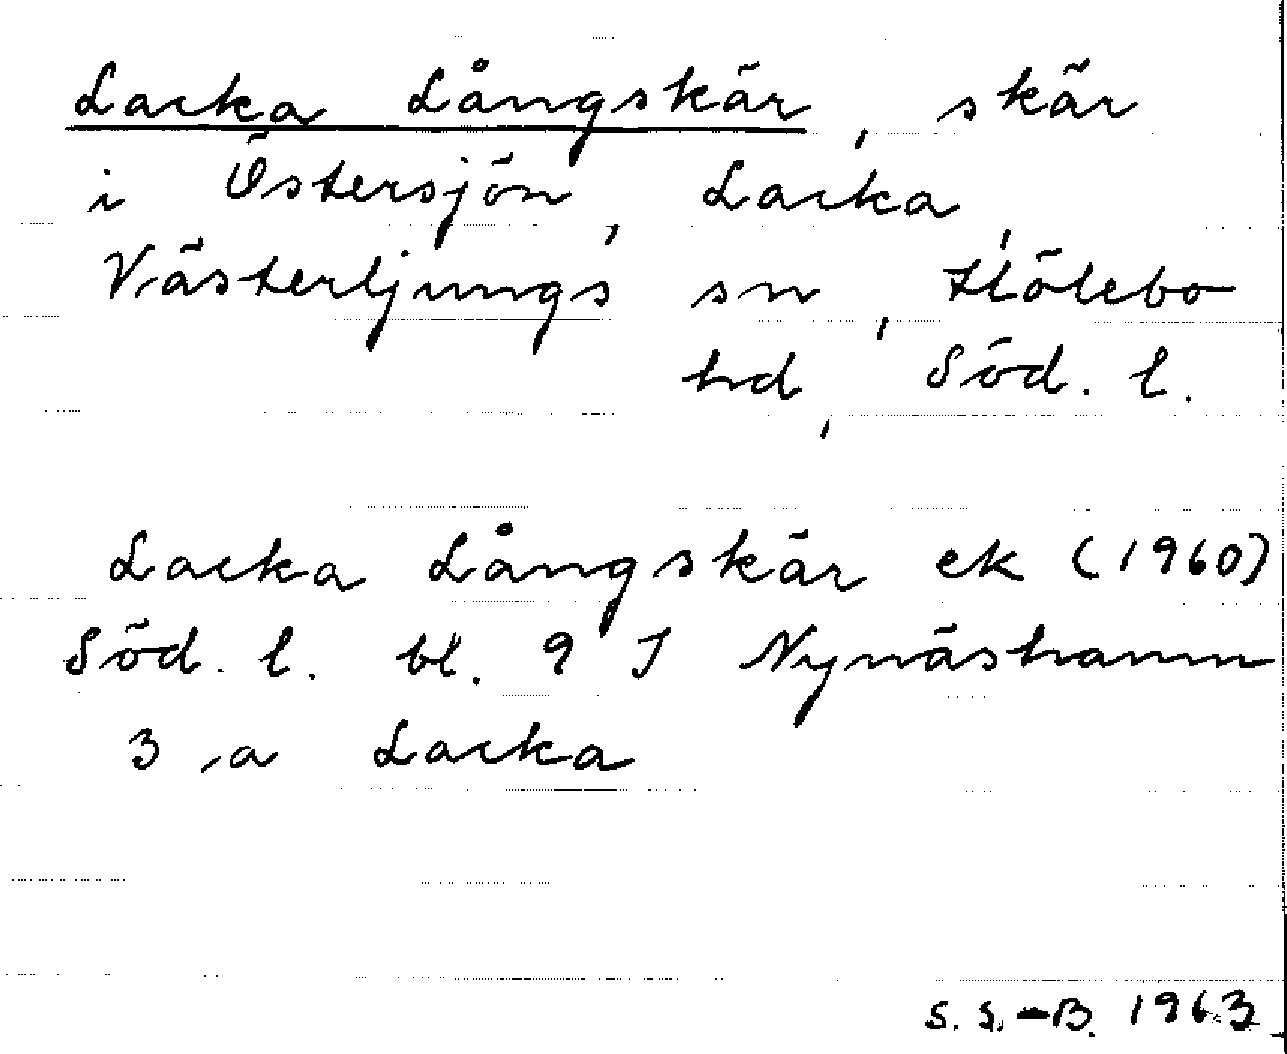 Lacka Långskär, skär
i Östersjön, Lacka,
Västerljungs sn, Hölebo
hd, Söd. l.
Lacka Långskär ek (1960)
Söd. l. bl. 9 I Nynäshamn
3 a Lacka
S. S.-B. 1963